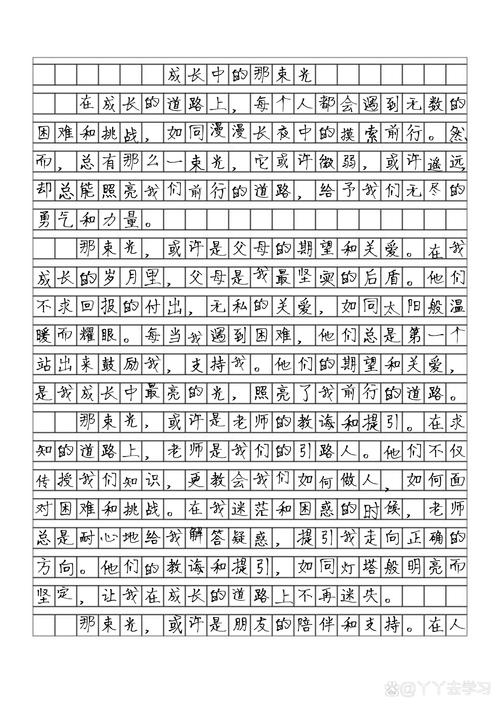 成长中的那束光
在成长的道路上，每个人都会遇到无数的
困难和挑战，如同漫漫长夜中的摸索前行。然
而，总有那么一束光，它或许微弱，或许遥远
却总能照亮我们前行的道路，给予我们无尽的
勇气和力量。
那束光，或许是父母的期望和关爱。在我
成长的岁月里，父母是我最坚实的后盾。他们
不求回报的付出，无私的关爱，如同太阳般温
暖而耀眼。每当我遇到困难，他们总是第一个
站出来鼓励我，支持我。他们的期望和关爱，
是我成长中最亮的光，照亮了我前行的道路。
那束光，或许是老师的教诲和提引。在求
知的道路上，老师是我们的引路人。他们不仅
传授我们知识，更教会我们如何做人，如何面
对困难和挑战。在我迷茫和困惑的时候，老师
总是耐心地给我解答疑惑，提引我走向正确的
方向。他们的教诲和提引，如同灯塔般明亮而
坚定，让我在成长的道路上不再迷失。
那束光，或许是朋友的陪伴和支持。在人
@丫丫去学习